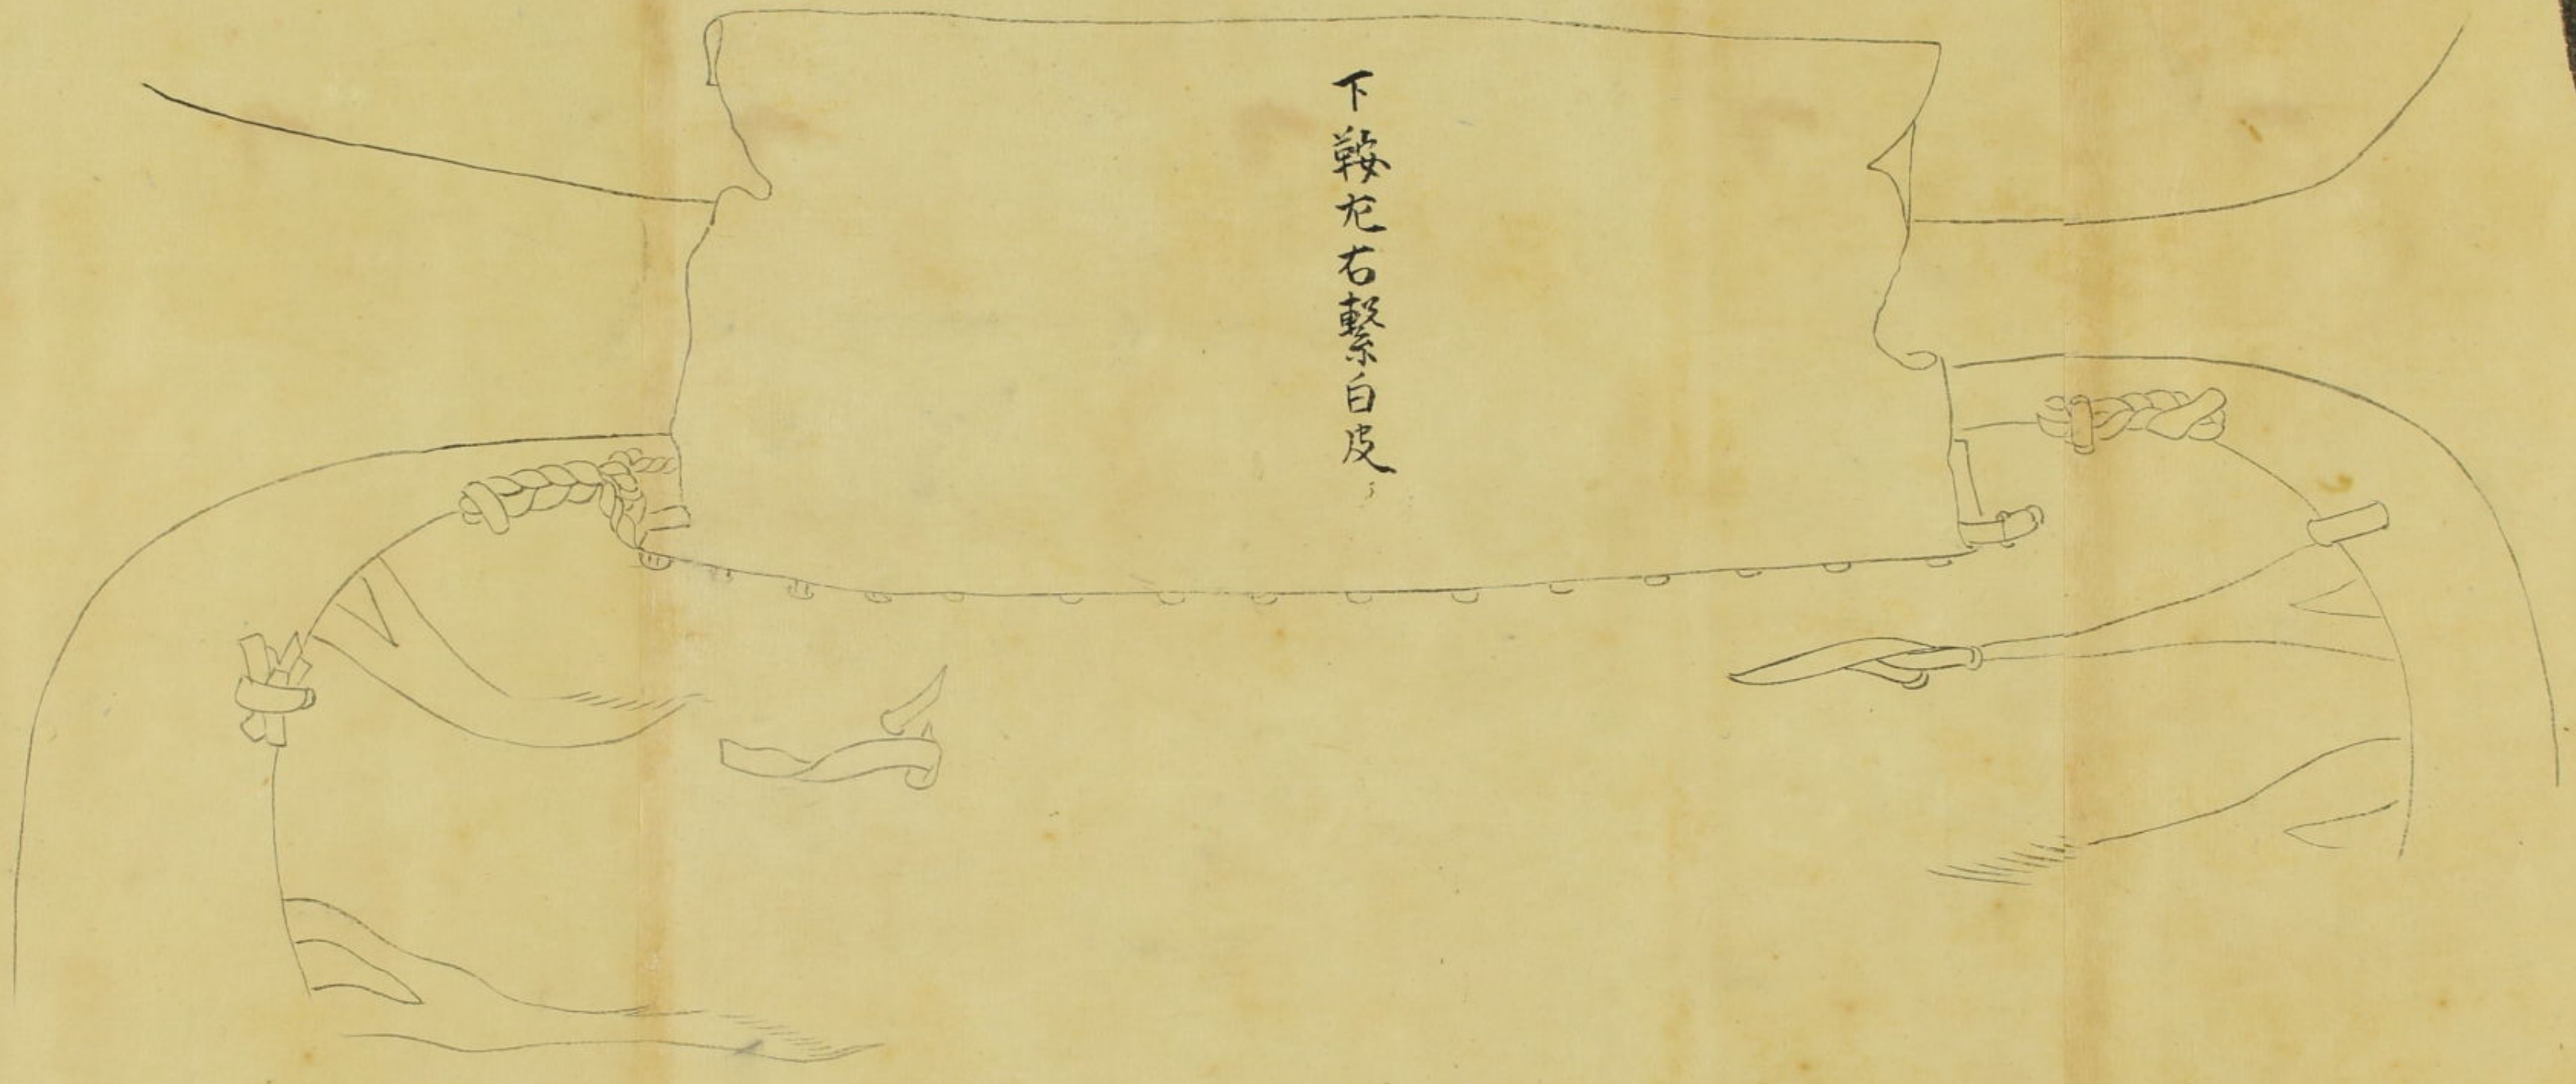 下鞍左右繋白皮